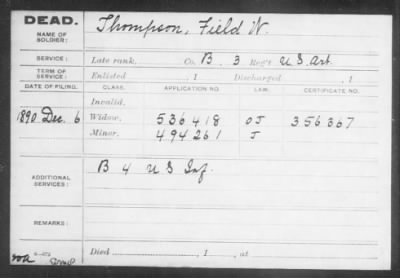 DEAD.
NAME OF SOLDIER:
Thompson, Field W.
SERVICE:
Late rank, Co. B. 3 Reg't U.S. Art.
TERM OF SERVICE:
Enlisted , 1 Discharged , 1
DATE OF FILING. CLASS. APPLICATION NO. LAW. CERTIFICATE NO.
Invalid.
1890 Dec. 6 Widow, 536418 OJ 356367
Minor. 494261 J
ADDITIONAL SERVICES:
B 4 U S Inf.
REMARKS:
Died , 1 , at